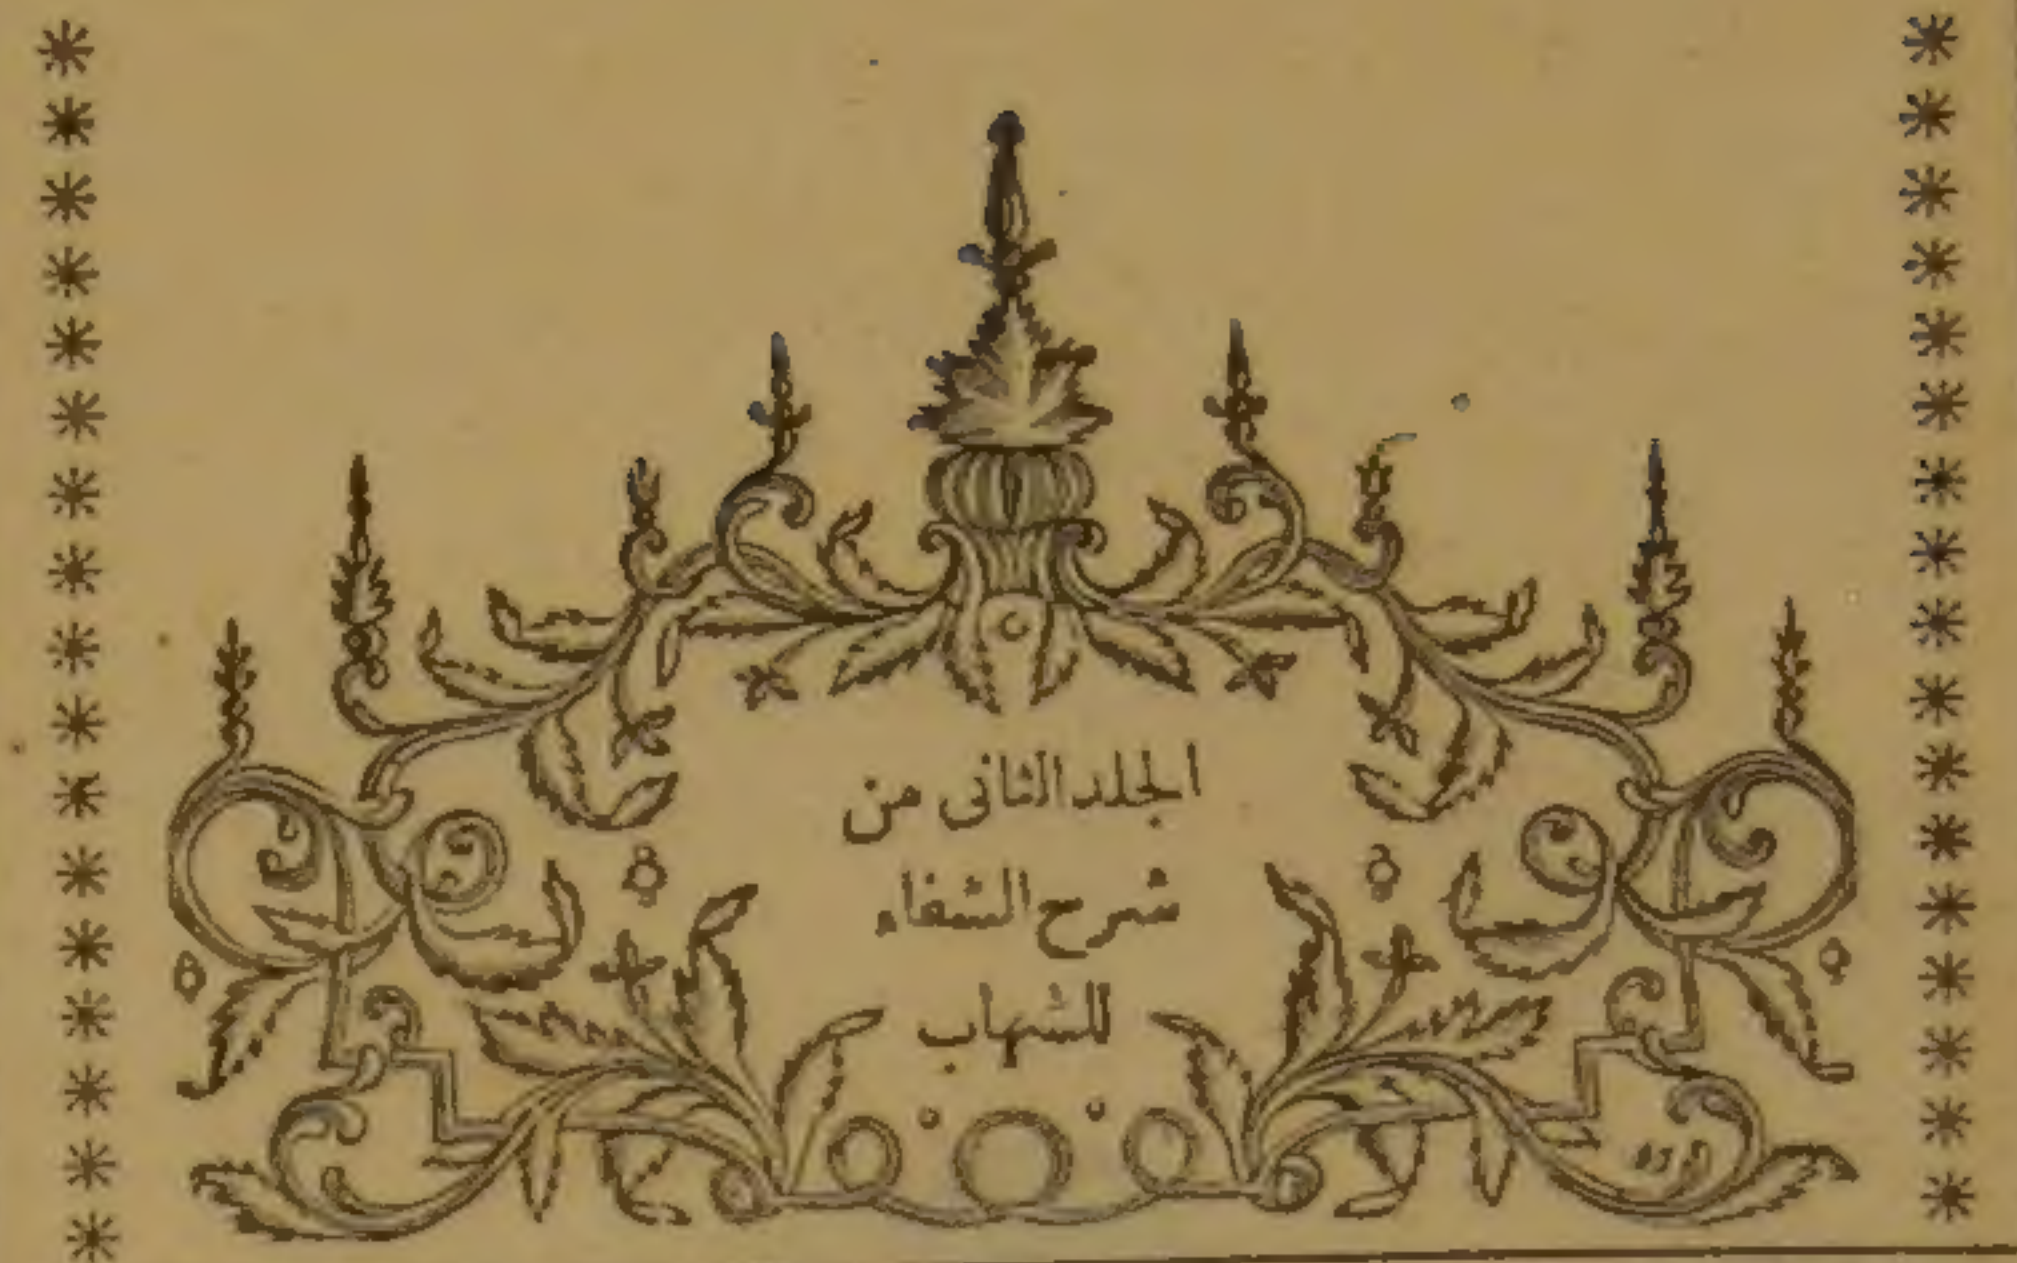 الجلد الثانى من
شرح الشفاء
للشهاب